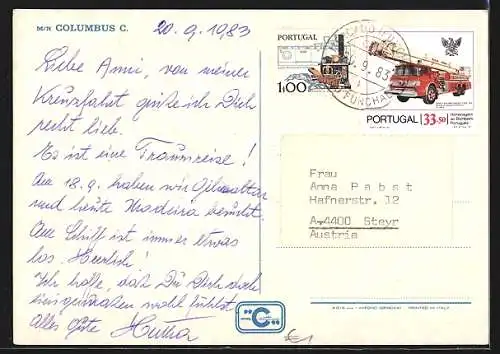 M/N COLUMBUS C.
20.9.1983
Liebe Anni, von meiner
Kreuzfahrt grüße ich Dich
recht liebe.
Es ist eine Traumreise!
Am 18.9. haben wir Gibraltar
und heute Madeira besucht.
Am Schiff ist immer etwas
los. Herrlich!
Ich hoffe, daß Du Dich doch
einigermaßen wohl fühlst.
Alles Gute
PORTUGAL
1.00
9 83
FUNCHAL
PORTUGAL 33.50
Frau
Anna Pabst
Hafnerstr. 12
A-4400 Steyr
Austria
"C"
PRINTED IN ITALY
€1